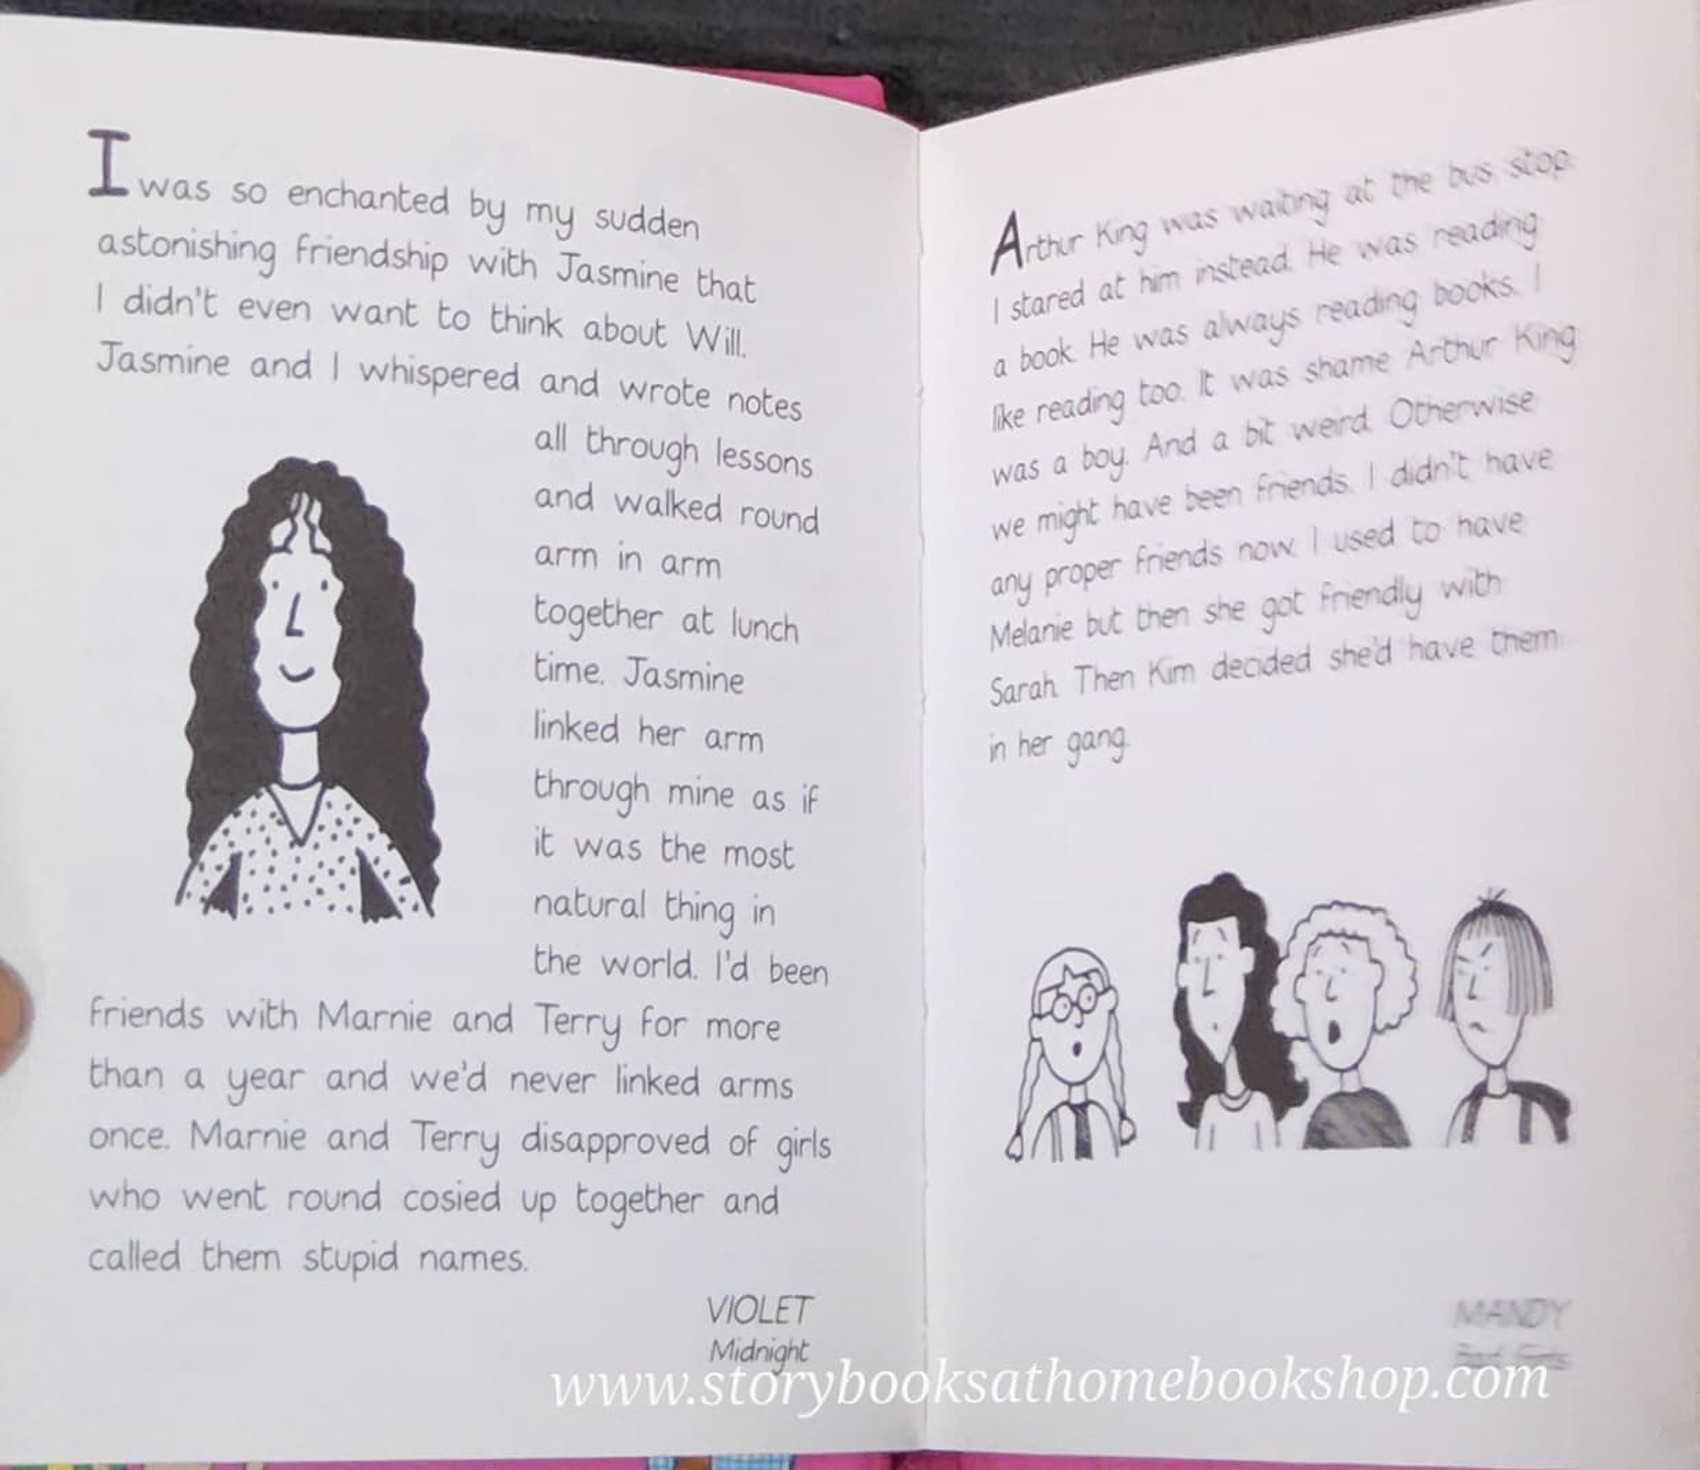 I was so enchanted by my sudden
astonishing friendship with Jasmine that
I didn't even want to think about Will.
Jasmine and I whispered and wrote notes
all through lessons
and walked round
arm in arm
together at lunch
time. Jasmine
linked her arm
through mine as if
it was the most
natural thing in
the world. I'd been
friends with Marnie and Terry for more
than a year and we'd never linked arms
once. Marnie and Terry disapproved of girls
who went round cosied up together and
called them stupid names.
VIOLET
Midnight
Arthur King was waiting at the bus stop.
I stared at him instead. He was reading
a book. He was always reading books. I
like reading too. It was shame Arthur King
was a boy. And a bit weird. Otherwise
we might have been friends. I didn't have
any proper friends now. I used to have
Melanie but then she got friendly with
Sarah. Then Kim decided she'd have them
in her gang.
MANDY
www.storybooksathomebookshop.com